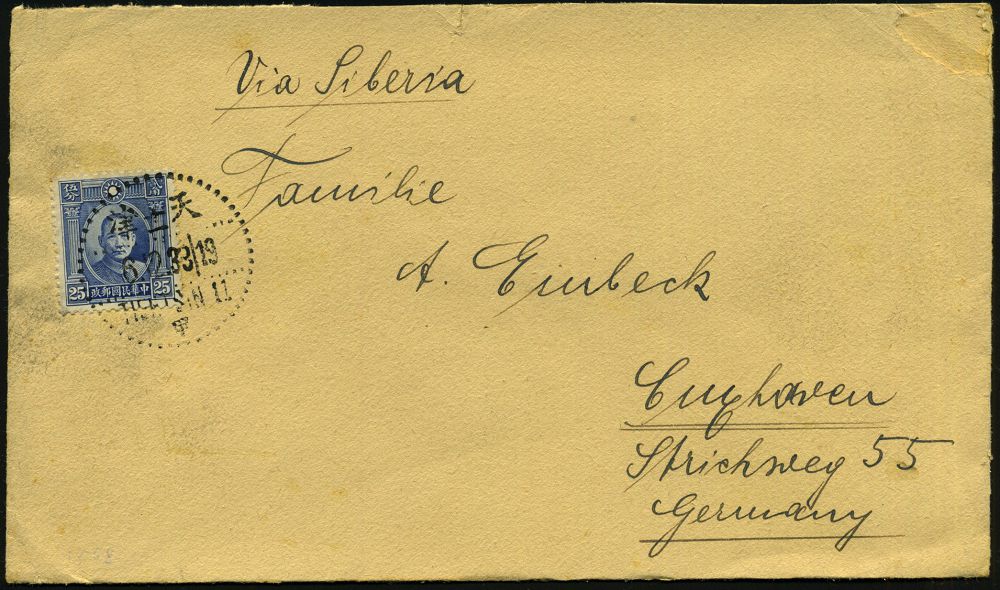 Via Siberia
Familie
A. Einbeck
Cuxhaven
Strichweg 55
Germany
伍分
25 中華民國郵政 25
津 天
33 19
TIENTSIN 11
甲